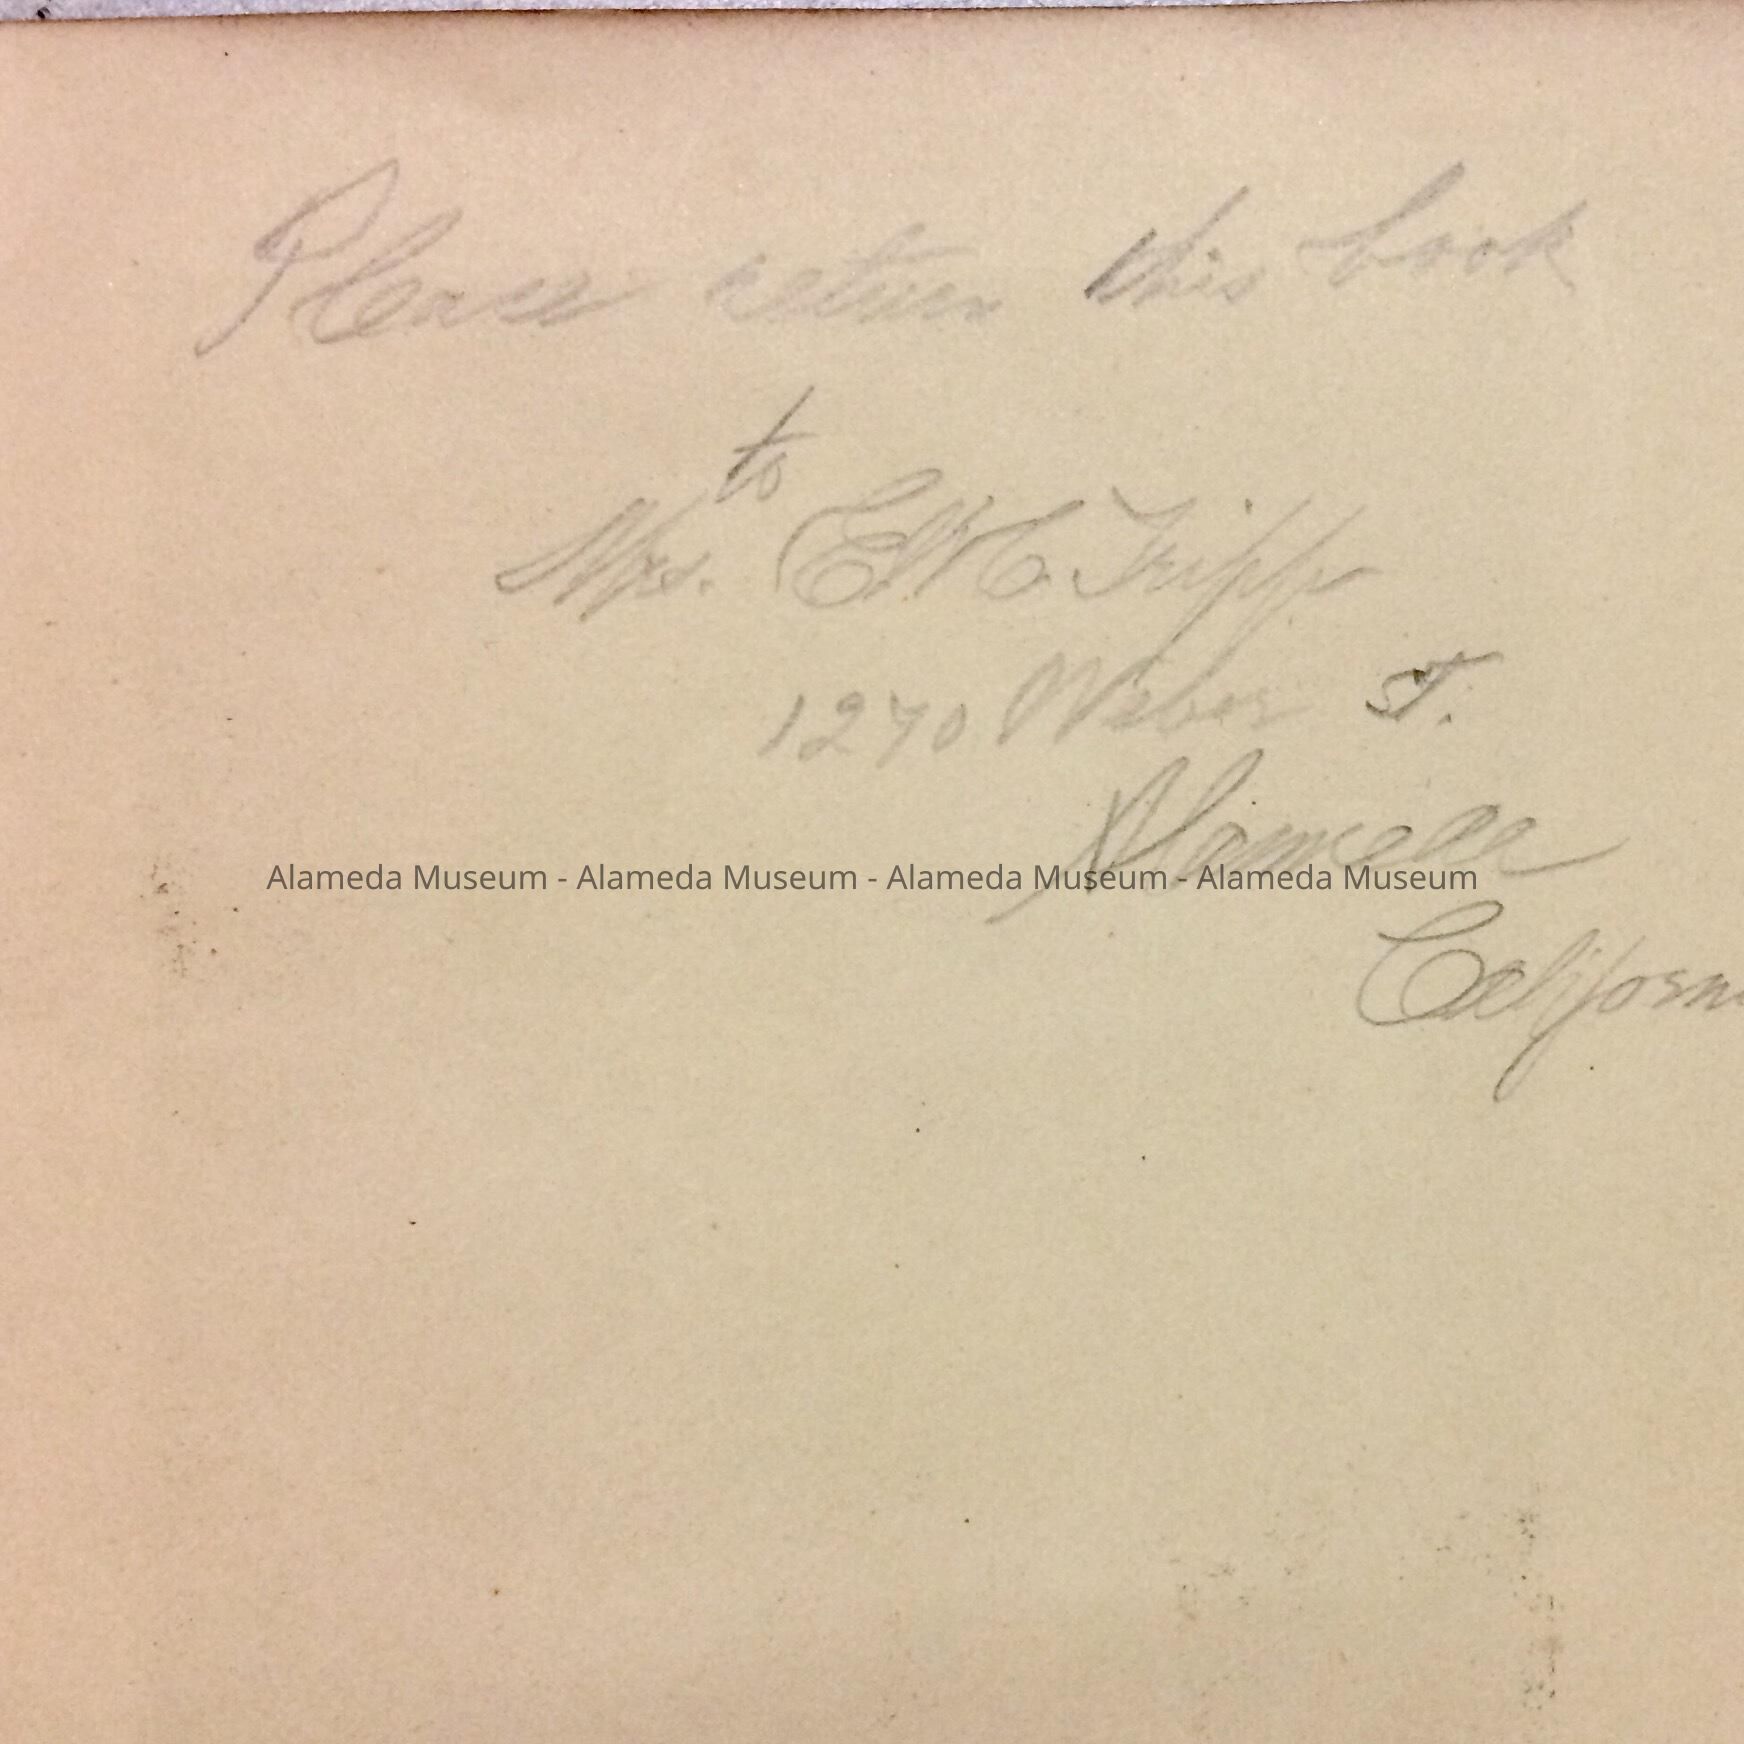 Please return this book
to
Mrs. E W C Tripp
1270 Weber St.
Alameda
Alameda Museum - Alameda Museum - Alameda Museum - Alameda Museum
Californi